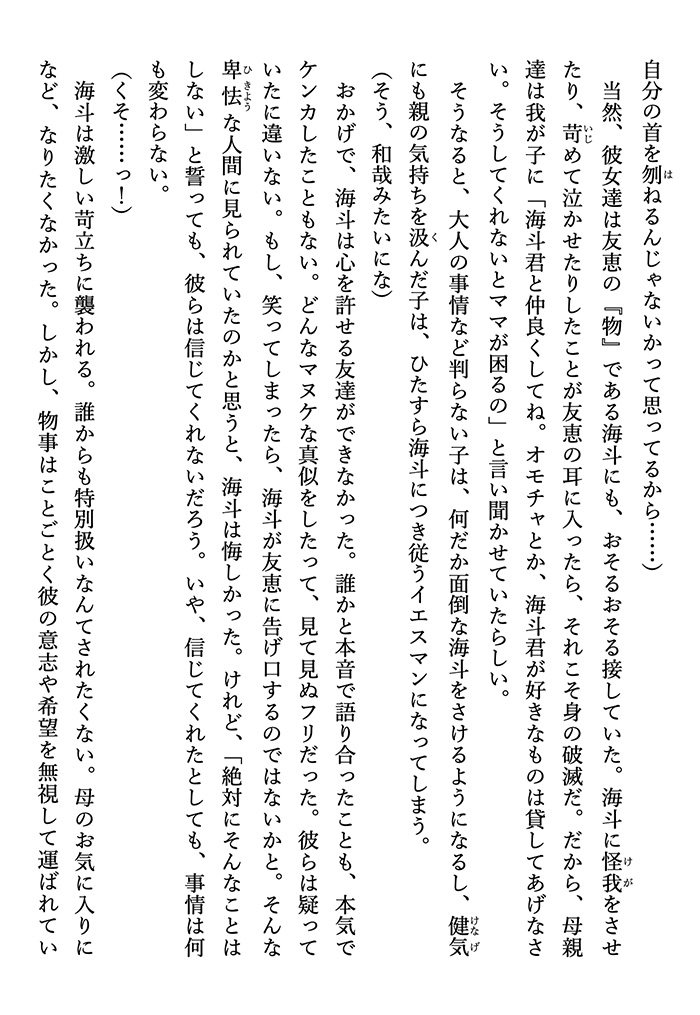 自分の首を刎ねるんじゃないかって思ってるから……）
　当然、彼女達は友恵の『物』である海斗にも、おそるおそる接していた。海斗に怪我をさせ
たり、苛めて泣かせたりしたことが友恵の耳に入ったら、それこそ身の破滅だ。だから、母親
達は我が子に「海斗君と仲良くしてね。オモチャとか、海斗君が好きなものは貸してあげなさ
い。そうしてくれないとママが困るの」と言い聞かせていたらしい。
　そうなると、大人の事情など判らない子は、何だか面倒な海斗をさけるようになるし、健気
にも親の気持ちを汲んだ子は、ひたすら海斗につき従うイエスマンになってしまう。
（そう、和哉みたいにな）
　おかげで、海斗は心を許せる友達ができなかった。誰かと本音で語り合ったことも、本気で
ケンカしたこともない。どんなマヌケな真似をしたって、見て見ぬフリだった。彼らは疑って
いたに違いない。もし、笑ってしまったら、海斗が友恵に告げ口するのではないかと。そんな
卑怯な人間に見られていたのかと思うと、海斗は悔しかった。けれど、「絶対にそんなことは
しない」と誓っても、彼らは信じてくれないだろう。いや、信じてくれたとしても、事情は何
も変わらない。
（くそ……っ！）
　海斗は激しい苛立ちに襲われる。誰からも特別扱いなんてされたくない。母のお気に入りに
など、なりたくなかった。しかし、物事はことごとく彼の意志や希望を無視して運ばれてい